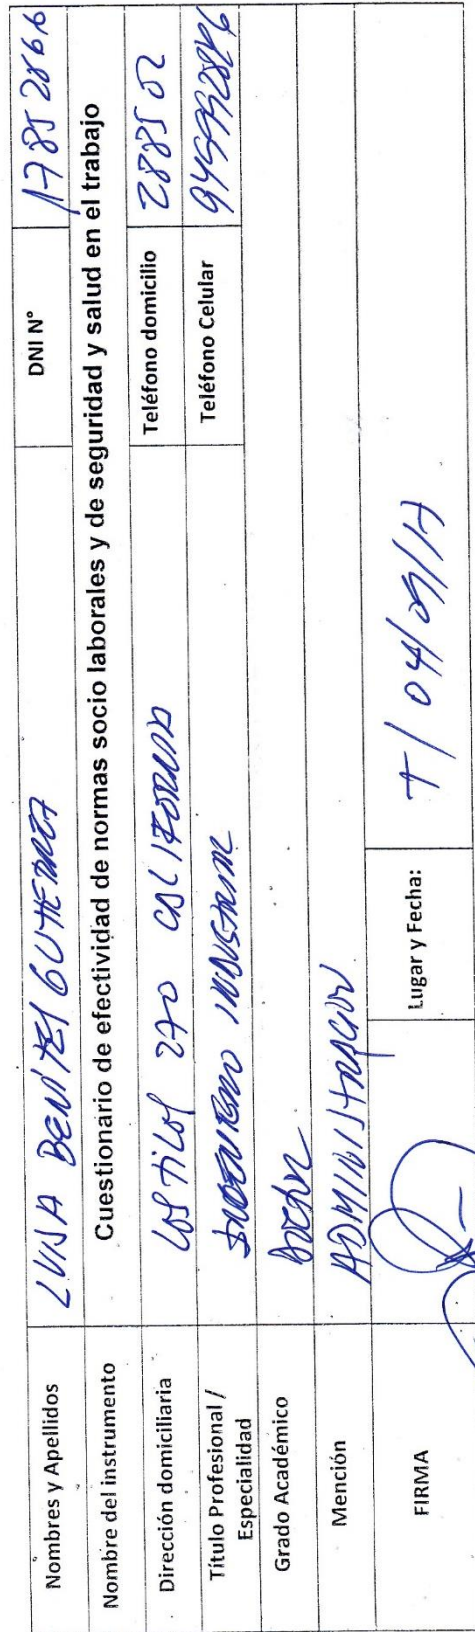 Nombres y Apellidos LUISA BENITES GUTIERREZ DNI N° 17852866
Nombre del instrumento Cuestionario de efectividad de normas socio laborales y de seguridad y salud en el trabajo
Dirección domiciliaria Los Tilos 270 CALIFORNIA Teléfono domicilio 288502
Título Profesional / INGENIERO INDUSTRIAL Teléfono Celular
Especialidad
Grado Académico Doctor
Mención ADMINISTRACION
FIRMA Lugar y Fecha: T / 04/09/17